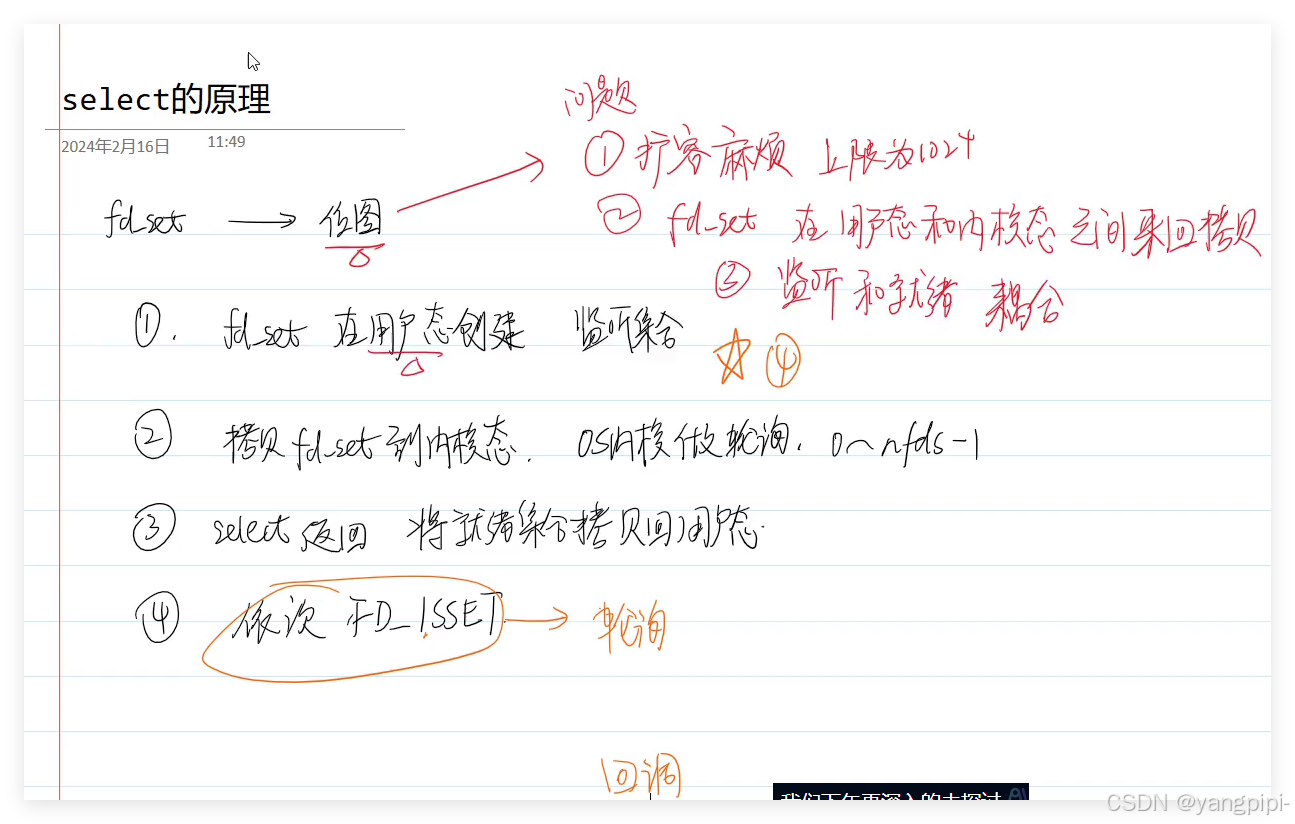 select的原理
2024年2月16日 11:49
问题
① 扩容麻烦 上限为1024
fd_set → 位图
② fd_set 在用户态和内核态之间来回拷贝
③ 监听和就绪 耦合
①. fd_set 在用户态创建 监听集合
☆ ④
② 拷贝fd_set到内核态. OS内核做轮询. 0~nfds-1
③ select返回 将就绪集合拷贝回用户态.
④ 依次 FD_ISSET → 轮询
回调
我们下午再深入的去探讨
CSDN @yangpipi-